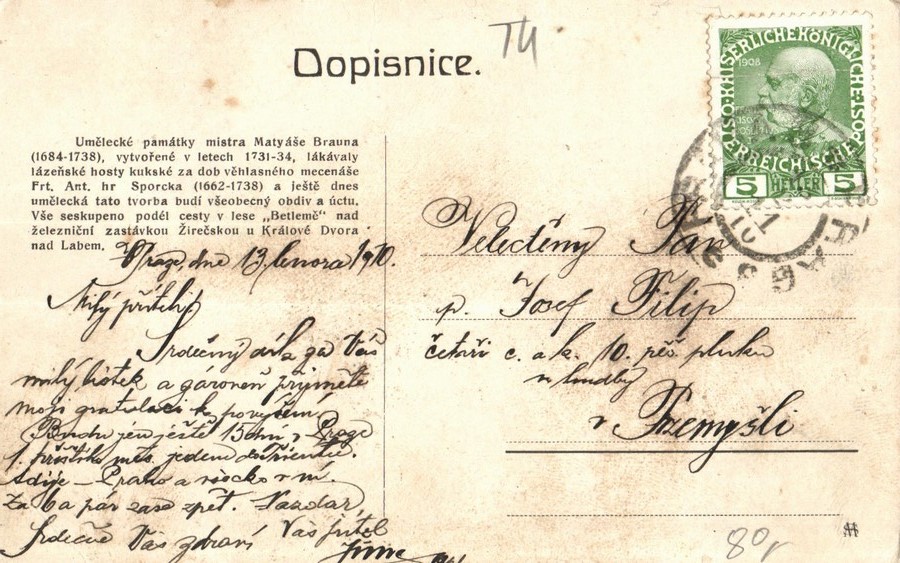 Dopisnice.
Th
1908
KAISERLICHE KÖNIGLICHE ÖSTERREICHISCHE
5 HELLER 5
PRAG
Umělecké památky mistra Matyáše Brauna
(1684-1738), vytvořené v letech 1731-34, lákávaly
lázeňské hosty kukské za dob věhlasného mecenáše
Frt. Ant. hr Sporcka (1662-1738) a ještě dnes
umělecká tato tvorba budí všeobecný obdiv a úctu.
Vše seskupeno podél cesty v lese „Betlemě" nad
železniční zastávkou Žirečskou u Králové Dvora
nad Labem.
Praze, dne 13. února 1910.
Milý příteli!
Srdečný dík za Váš
milý lístek a zároveň přijměte
moji gratulaci k povýšení.
Budu jen ještě 15 dní v Praze
1. příštího měs. jedeme do
Adije - Praho a všecko v ní.
Za pár zase zpět. Nazdar,
Srdečně Vás zdraví Váš přítel
Velectěný Pan
p. Josef Filip
četař c. a k. 10. pěš. pluku
u hudby
v Přemyšli
80,-